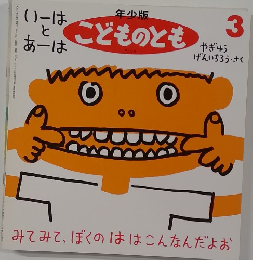 いーは
と
あーは
年少版
こどものとも
3
やぎゅう
げんいちろう・さく
みてみて、ぼくの はは こんなんだよお